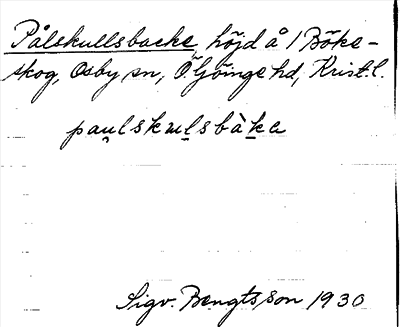 Pålskullsbacke, höjd å 1 Böke-
skog, Osby sn, Ö Göinge hd, Krist. l.
pau̯lskulsbàka
Sigv. Bengtsson 1930